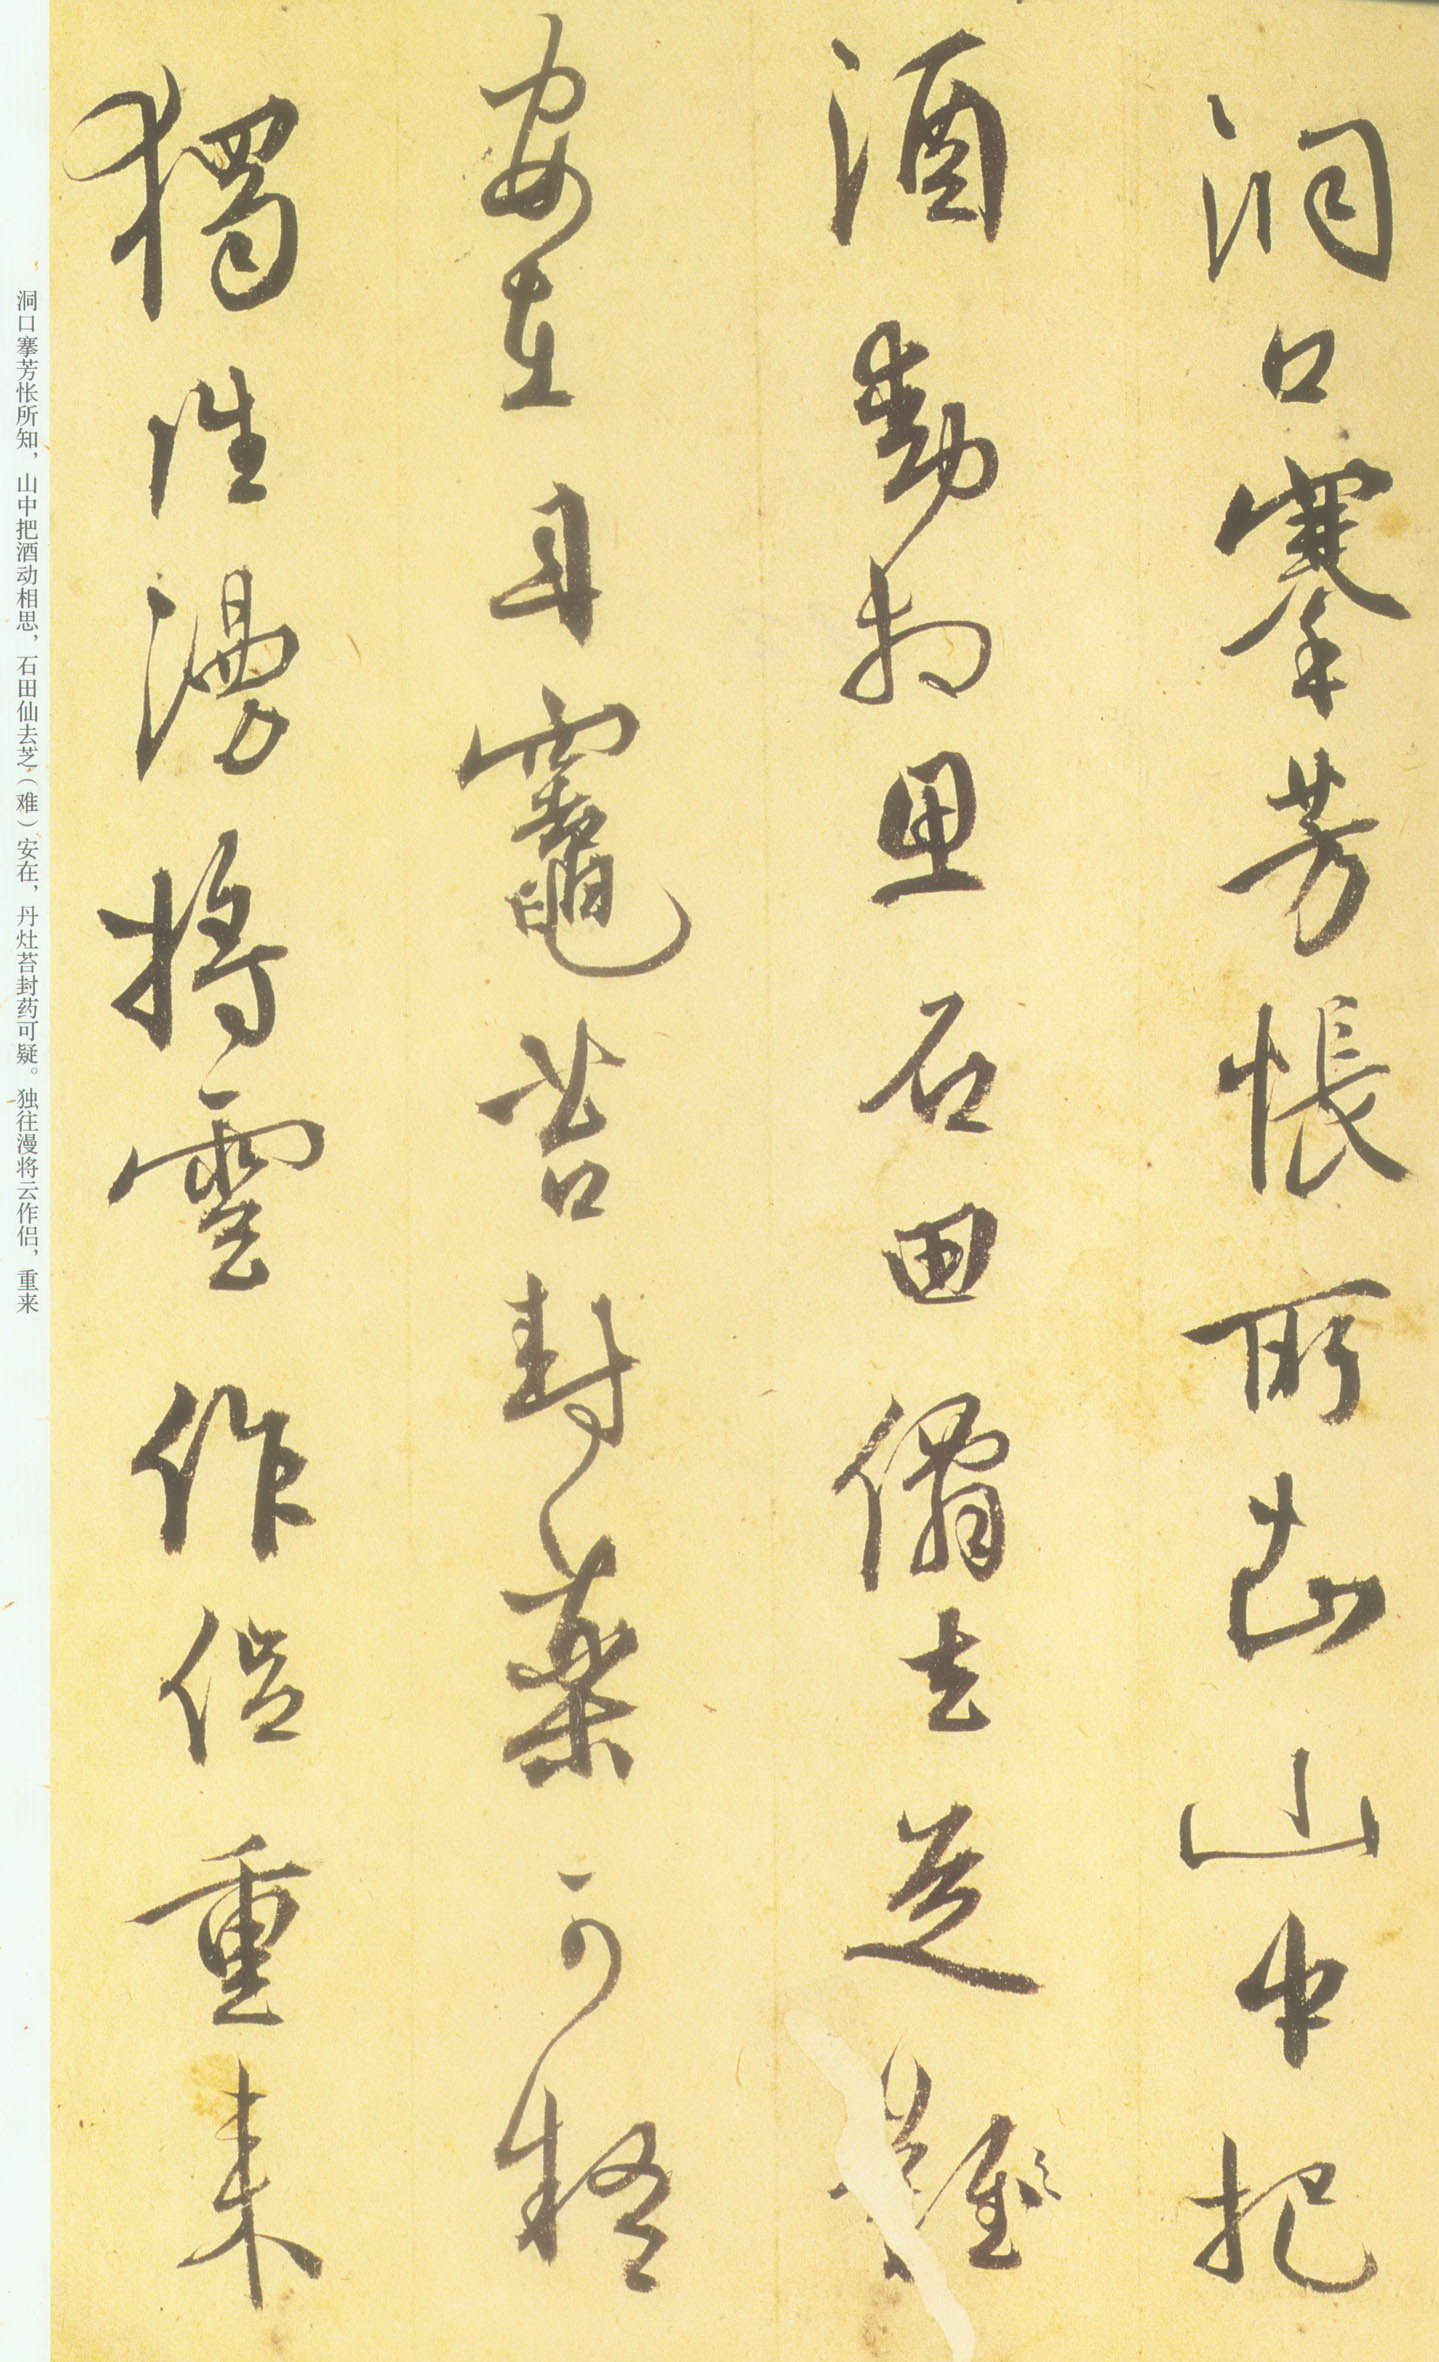 洞口搴芳悵所山中把
酒動相思石田僊去芝難
安在丹竈苔封藥可疑
獨往漫將雲作侣重来
洞口搴芳怅所知，山中把酒动相思，石田仙去芝（难）安在，丹灶苔封药可疑。独往漫将云作侣，重来